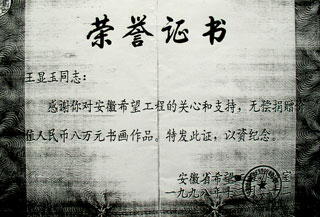 荣誉证书
王显玉同志:
感谢你对安徽希望工程的关心和支持,无偿捐赠
值人民币八万元书画作品。特发此证,以资纪念。
安徽省希望
一九九八年十